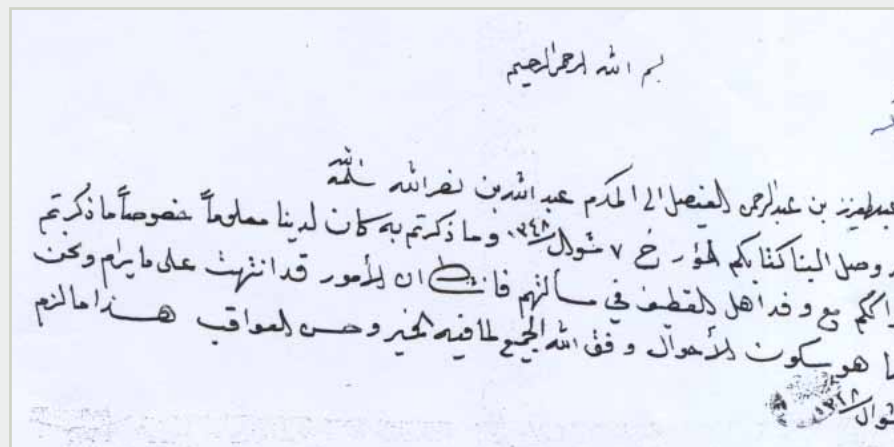 بسم الله الرحمن الرحيم
عبدالعزيز بن عبدالرحمن الفيصل الى المكرم عبد الله بن نصر الله سلمه الله
وصل الينا كتابكم المؤرخ ٧ شوال ١٣٤٨ وما ذكرتم به كان لدينا معلوماً خصوصاً ما ذكرتم
مع وفد اهل القطيف في مسألتهم ان الأمور قد انتهت على ما يرام ونحن
هو سكون الأحوال وفق الله الجميع لما فيه الخير وحسن العواقب هذا ما لزم
١٣٤٨